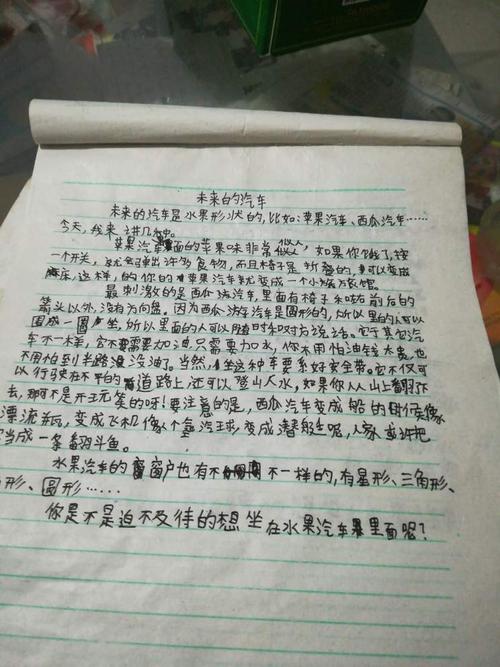 未来的汽车
未来的汽车是水果形状的,比如:苹果汽车、西瓜汽车……
今天,我来讲几
苹果汽车里面的苹果味非常 人,如果你饿了,按
一个开关,就会弹出许多食物,而且椅子是折叠的,可以变成
床,这样的你的苹果汽车就变成一个小旅馆。
最刺激的是西瓜汽车,里面有椅子和 前后的
箭头以外,没有方向盘。因为西瓜 汽车是圆形的,所以里的人可以
围成一圆坐,所以里面的人可以随时和对方说话。它于其它汽
车不一样,它不需要加油,只需要加水,你不用怕油钱太贵,也
不用怕到半路没油了。当然,坐这种车要系好安全带。它不仅可
以行驶在不平的道路上还可以登山入水,如果你从山上翻了下
去,那可不是开玩笑的呀!要注意的是,西瓜汽车变成船的时候像
漂流 ,变成飞机像个氢汽球,变成潜 呢,人家或许把
它当成一条 斗鱼。
水果汽车的窗户也有不 不一样的,有星形、三角形、
形、圆形……
你是不是迫不及待的想坐在水果汽车里面呢?